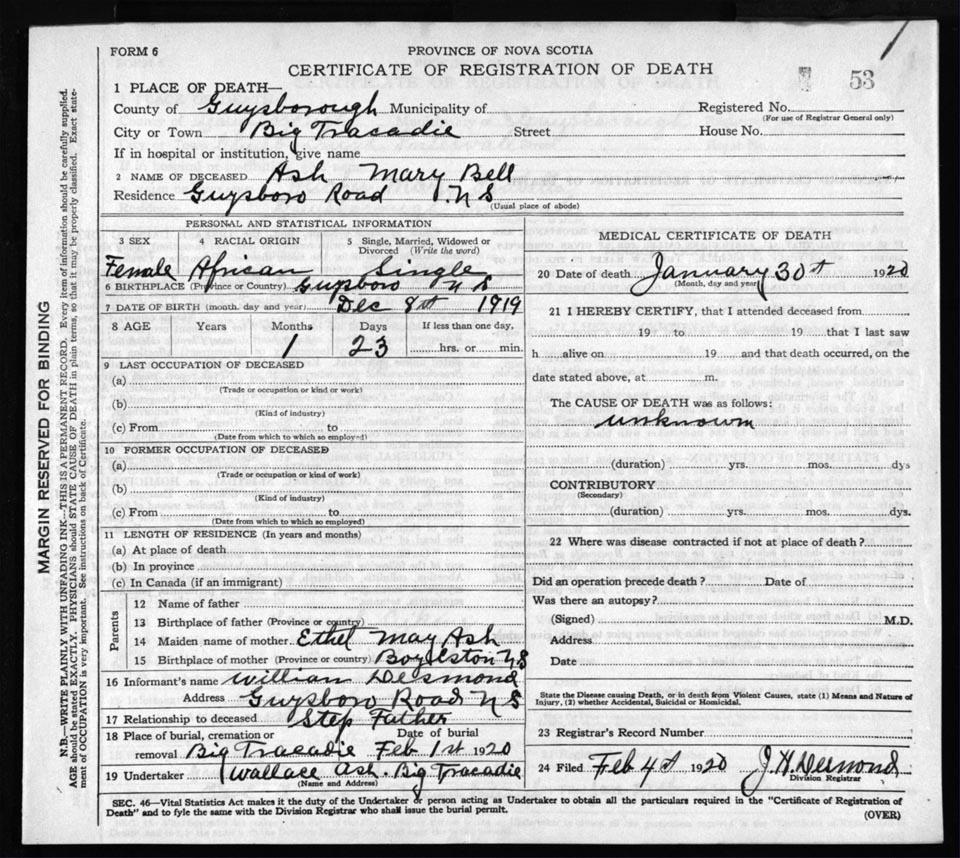 FORM 6
PROVINCE OF NOVA SCOTIA
CERTIFICATE OF REGISTRATION OF DEATH
53
1 PLACE OF DEATH—
County of Guysborough Municipality of
Registered No.
(For use of Registrar General only)
City or Town Big Tracadie Street House No.
If in hospital or institution, give name
2 NAME OF DECEASED Ash Mary Bell
Residence Guysboro Road N S
(Usual place of abode)
PERSONAL AND STATISTICAL INFORMATION
3 SEX 4 RACIAL ORIGIN 5 Single, Married, Widowed or Divorced (Write the word)
Female African Single
6 BIRTHPLACE (Province or Country) Guysboro N S
7 DATE OF BIRTH (month. day and year) Dec 8st 1919
8 AGE Years Months Days If less than one day,
1 23 hrs. or min.
9 LAST OCCUPATION OF DECEASED
(a)
(Trade or occupation or kind or work)
(b)
(Kind of industry)
(c) From to
(Date from which to which so employed)
10 FORMER OCCUPATION OF DECEASED
(a)
(Trade or occupation or kind of work)
(b)
(Kind of industry)
(c) From to
(Date from which to which so employed)
11 LENGTH OF RESIDENCE (In years and months)
(a) At place of death
(b) In province
(c) In Canada (if an immigrant)
Parents
12 Name of father
13 Birthplace of father (Province or country)
14 Maiden name of mother Ethel May Ash
15 Birthplace of mother (Province or country) Boylston N S
16 Informant's name William Desmond
Address Guysboro Road N S
17 Relationship to deceased Step Father
18 Place of burial, cremation or removal Date of burial
Big Tracadie Feb 1st 1920
19 Undertaker Wallace Ash. Big Tracadie
(Name and Address)
MEDICAL CERTIFICATE OF DEATH
20 Date of death January 30st 1920
(Month, day and year)
21 I HEREBY CERTIFY, that I attended deceased from
19 to 19 that I last saw
h alive on 19 and that death occurred, on the
date stated above, at m.
The CAUSE OF DEATH was as follows:
unknown
(duration) yrs. mos. dys
CONTRIBUTORY
(Secondary)
(duration) yrs. mos. dys.
22 Where was disease contracted if not at place of death?
Did an operation precede death? Date of
Was there an autopsy?
(Signed) M.D.
Address
Date
State the Disease causing Death, or in death from Violent Causes, state (1) Means and Nature of
Injury, (2) whether Accidental, Suicidal or Homicidal.
23 Registrar's Record Number
24 Filed Feb 4st 1920 J. H. Desmond
Division Registrar
SEC. 46—Vital Statistics Act makes it the duty of the Undertaker or person acting as Undertaker to obtain all the particulars required in the "Certificate of Registration of
Death" and to fyle the same with the Division Registrar who shall issue the burial permit.
(OVER)
MARGIN RESERVED FOR BINDING
N.B.—WRITE PLAINLY WITH UNFADING INK—THIS IS A PERMANENT RECORD. Every item of information should be carefully supplied.
AGE should be stated EXACTLY. PHYSICIANS should STATE CAUSE OF DEATH in plain terms, so that it may be properly classified. Exact state-
ment of OCCUPATION is very important. See instructions on back of Certificate.